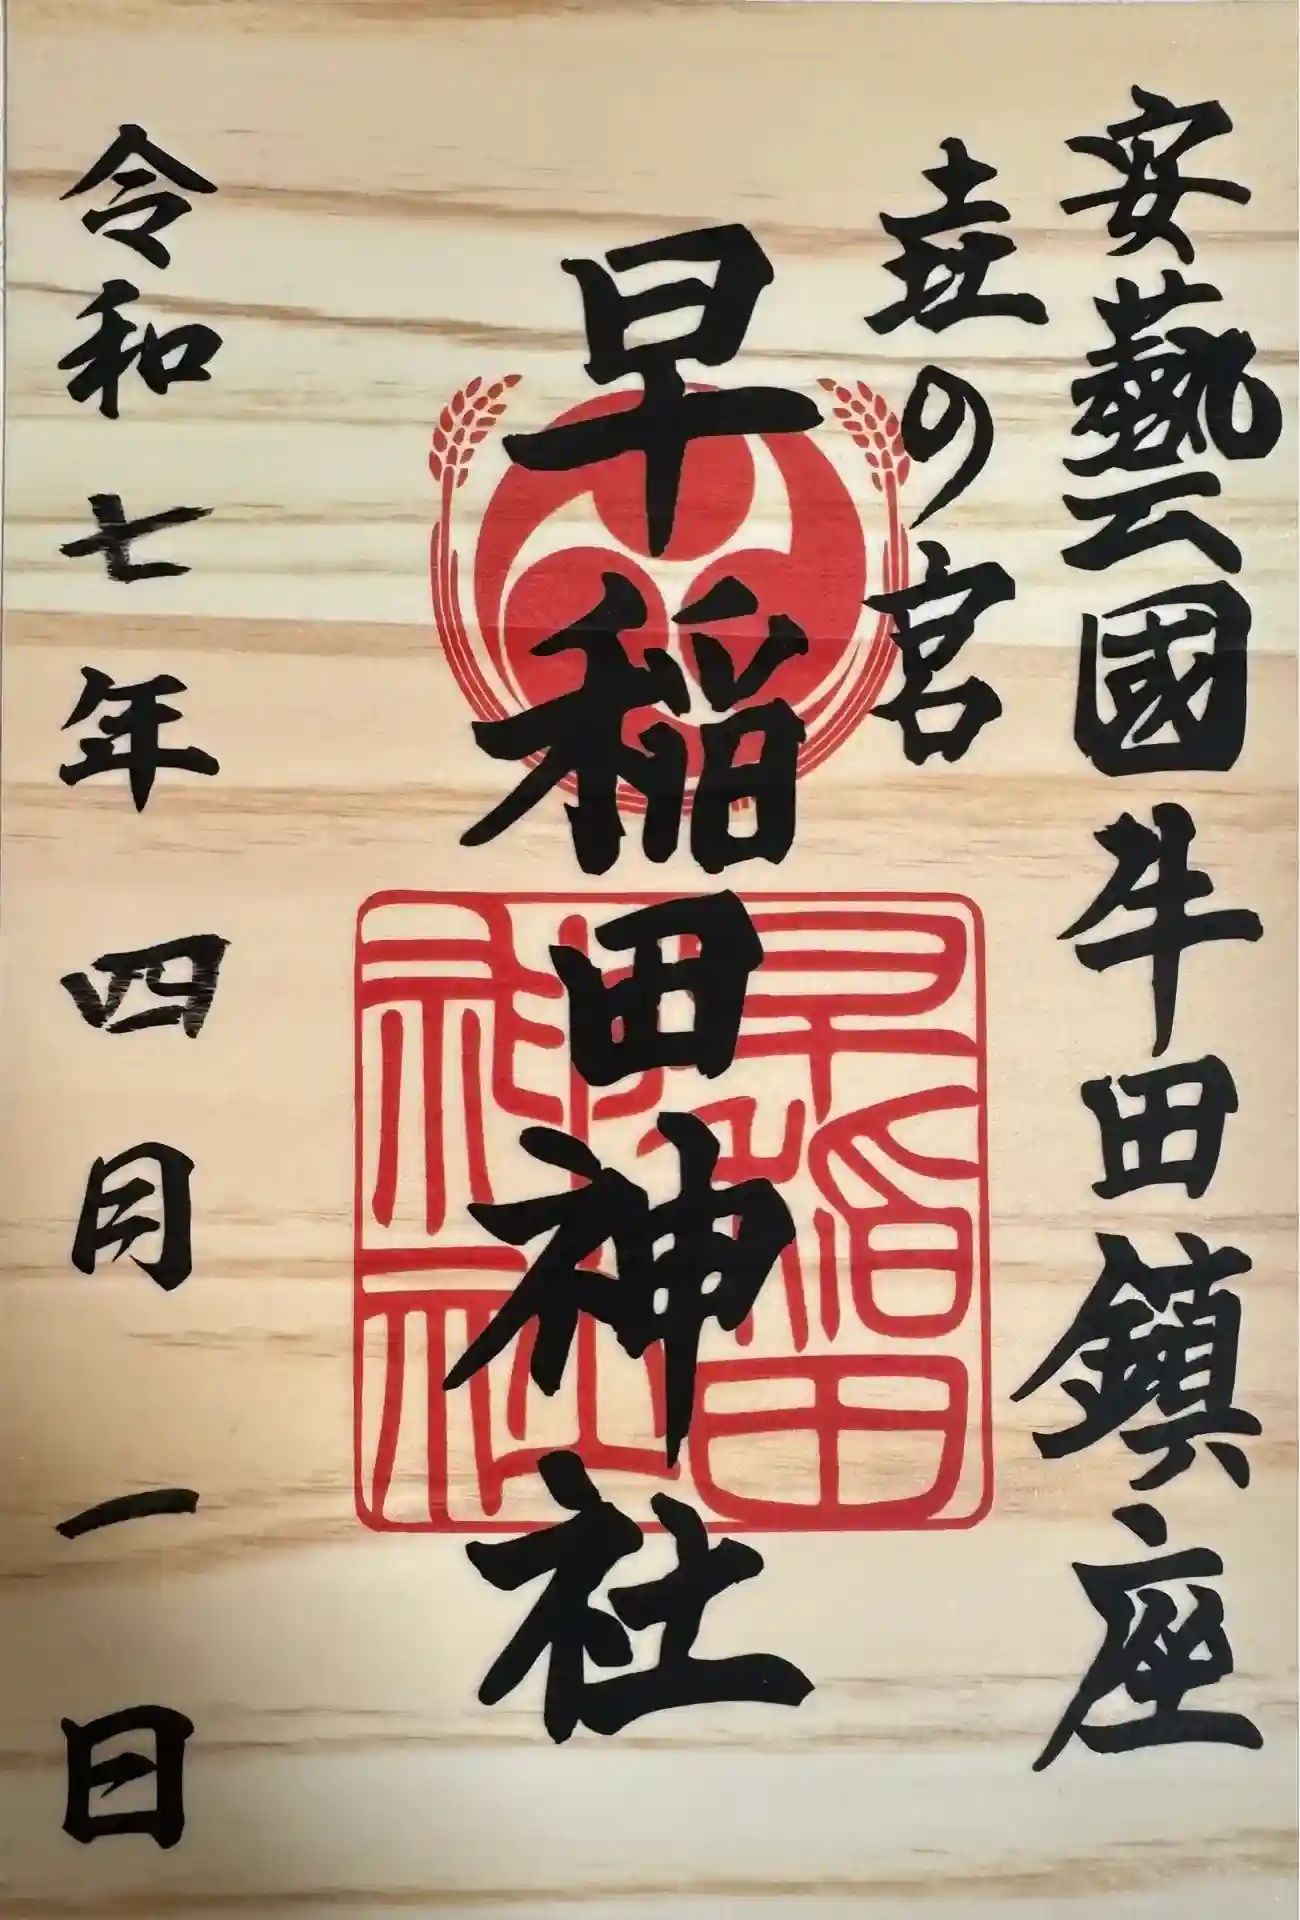 安藝國牛田鎮座
壷の宮
早稲田神社
早稲田
神社
令和七年四月一日